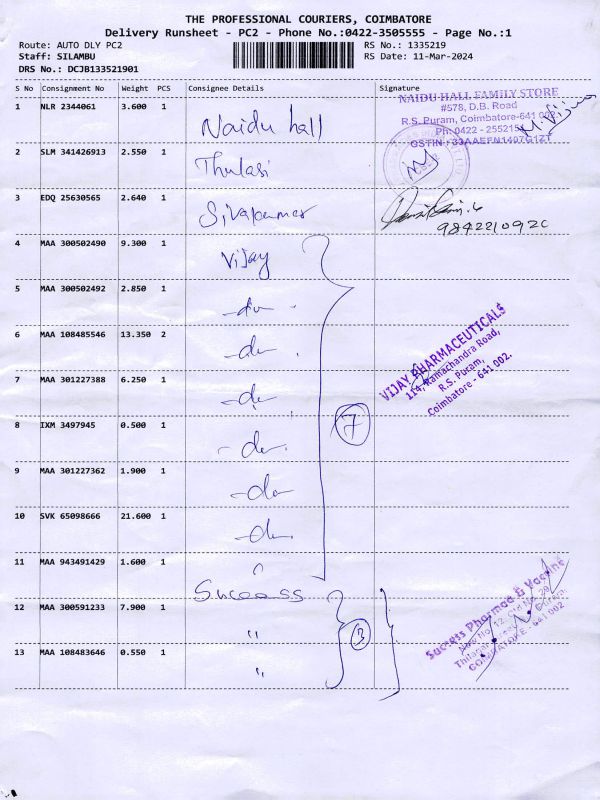 THE PROFESSIONAL COURIERS, COIMBATORE
Delivery Runsheet - PC2 - Phone No.:0422-3505555 - Page No.:1
Route: AUTO DLY PC2 RS No.: 1335219
Staff: SILAMBU RS Date: 11-Mar-2024
DRS No.: DCJB133521901
S No Consignment No Weight PCS Consignee Details Signature
1 NLR 2344061 3.600 1 Naidu hall
NAIDU HALL FAMILY STORE
#578, D.B. Road
R.S. Puram, Coimbatore-641 002.
Ph: 0422 - 255215
GSTIN : 33AAEFN1407G1ZT
2 SLM 341426913 2.550 1 Thulasi
3 EDQ 25630565 2.640 1 Sivakumar
4 MAA 300502490 9.300 1 Vijay
5 MAA 300502492 2.850 1 -do-
6 MAA 108485546 13.350 2 -do-
VIJAY PHARMACEUTICALS
114, Ramachandra Road,
R.S. Puram,
Coimbatore - 641 002.
7 MAA 301227388 6.250 1 -do-
7
8 IXM 3497945 0.500 1 -do-
9 MAA 301227362 1.900 1 -do-
10 SVK 65098666 21.600 1 -do-
11 MAA 943491429 1.600 1 Success
12 MAA 300591233 7.900 1 "
3
Success Pharma & Vaccine
COIMBATORE - 641 002
13 MAA 108483646 0.550 1 "